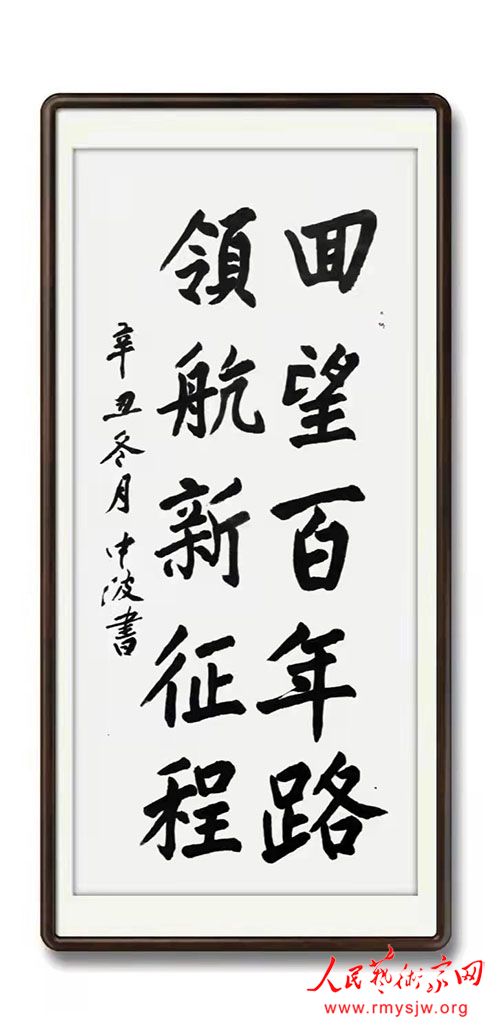 回望百年路
領航新征程
辛丑冬月中波書
人民藝術家网
www.rmysjw.org